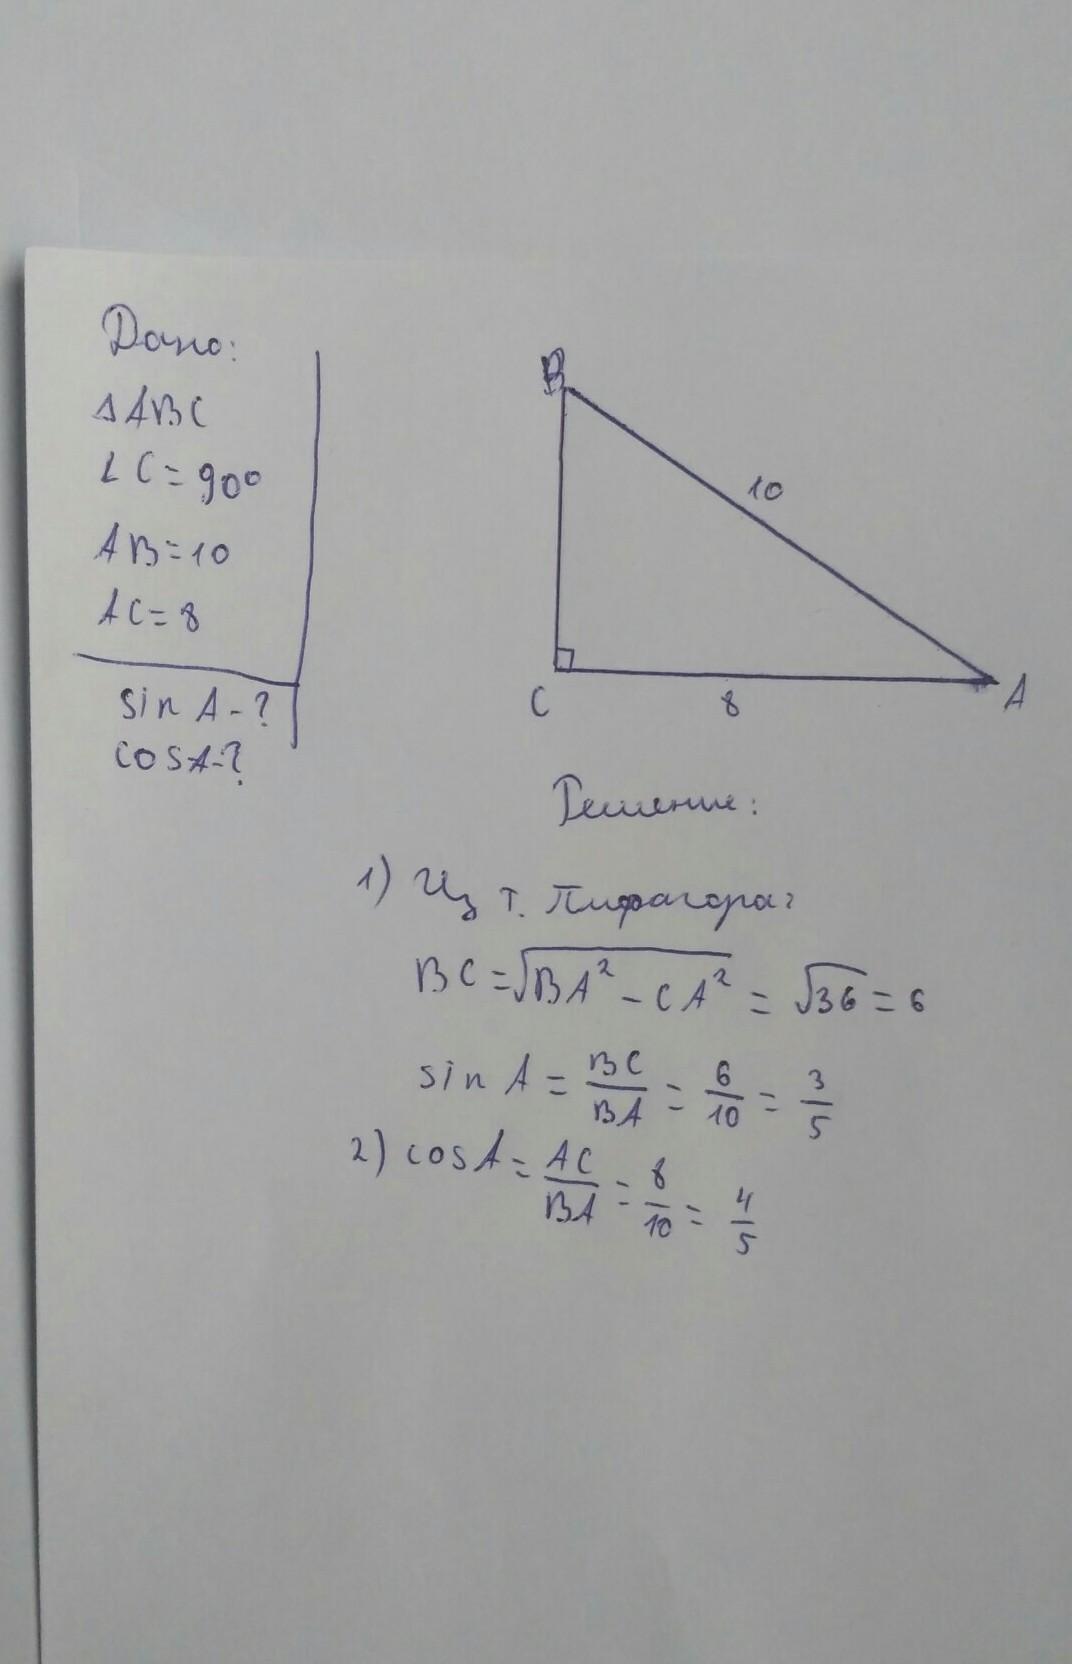 Дано:
ΔABC
∠C=90°
AB=10
AC=8
sin A-?
cosA-?
B
10
C
8
A
Решение:
1) Из т. Пифагора:
BC=√BA²-CA² = √36 = 6
sin A = BC/BA = 6/10 = 3/5
2) cosA = AC/BA = 8/10 = 4/5